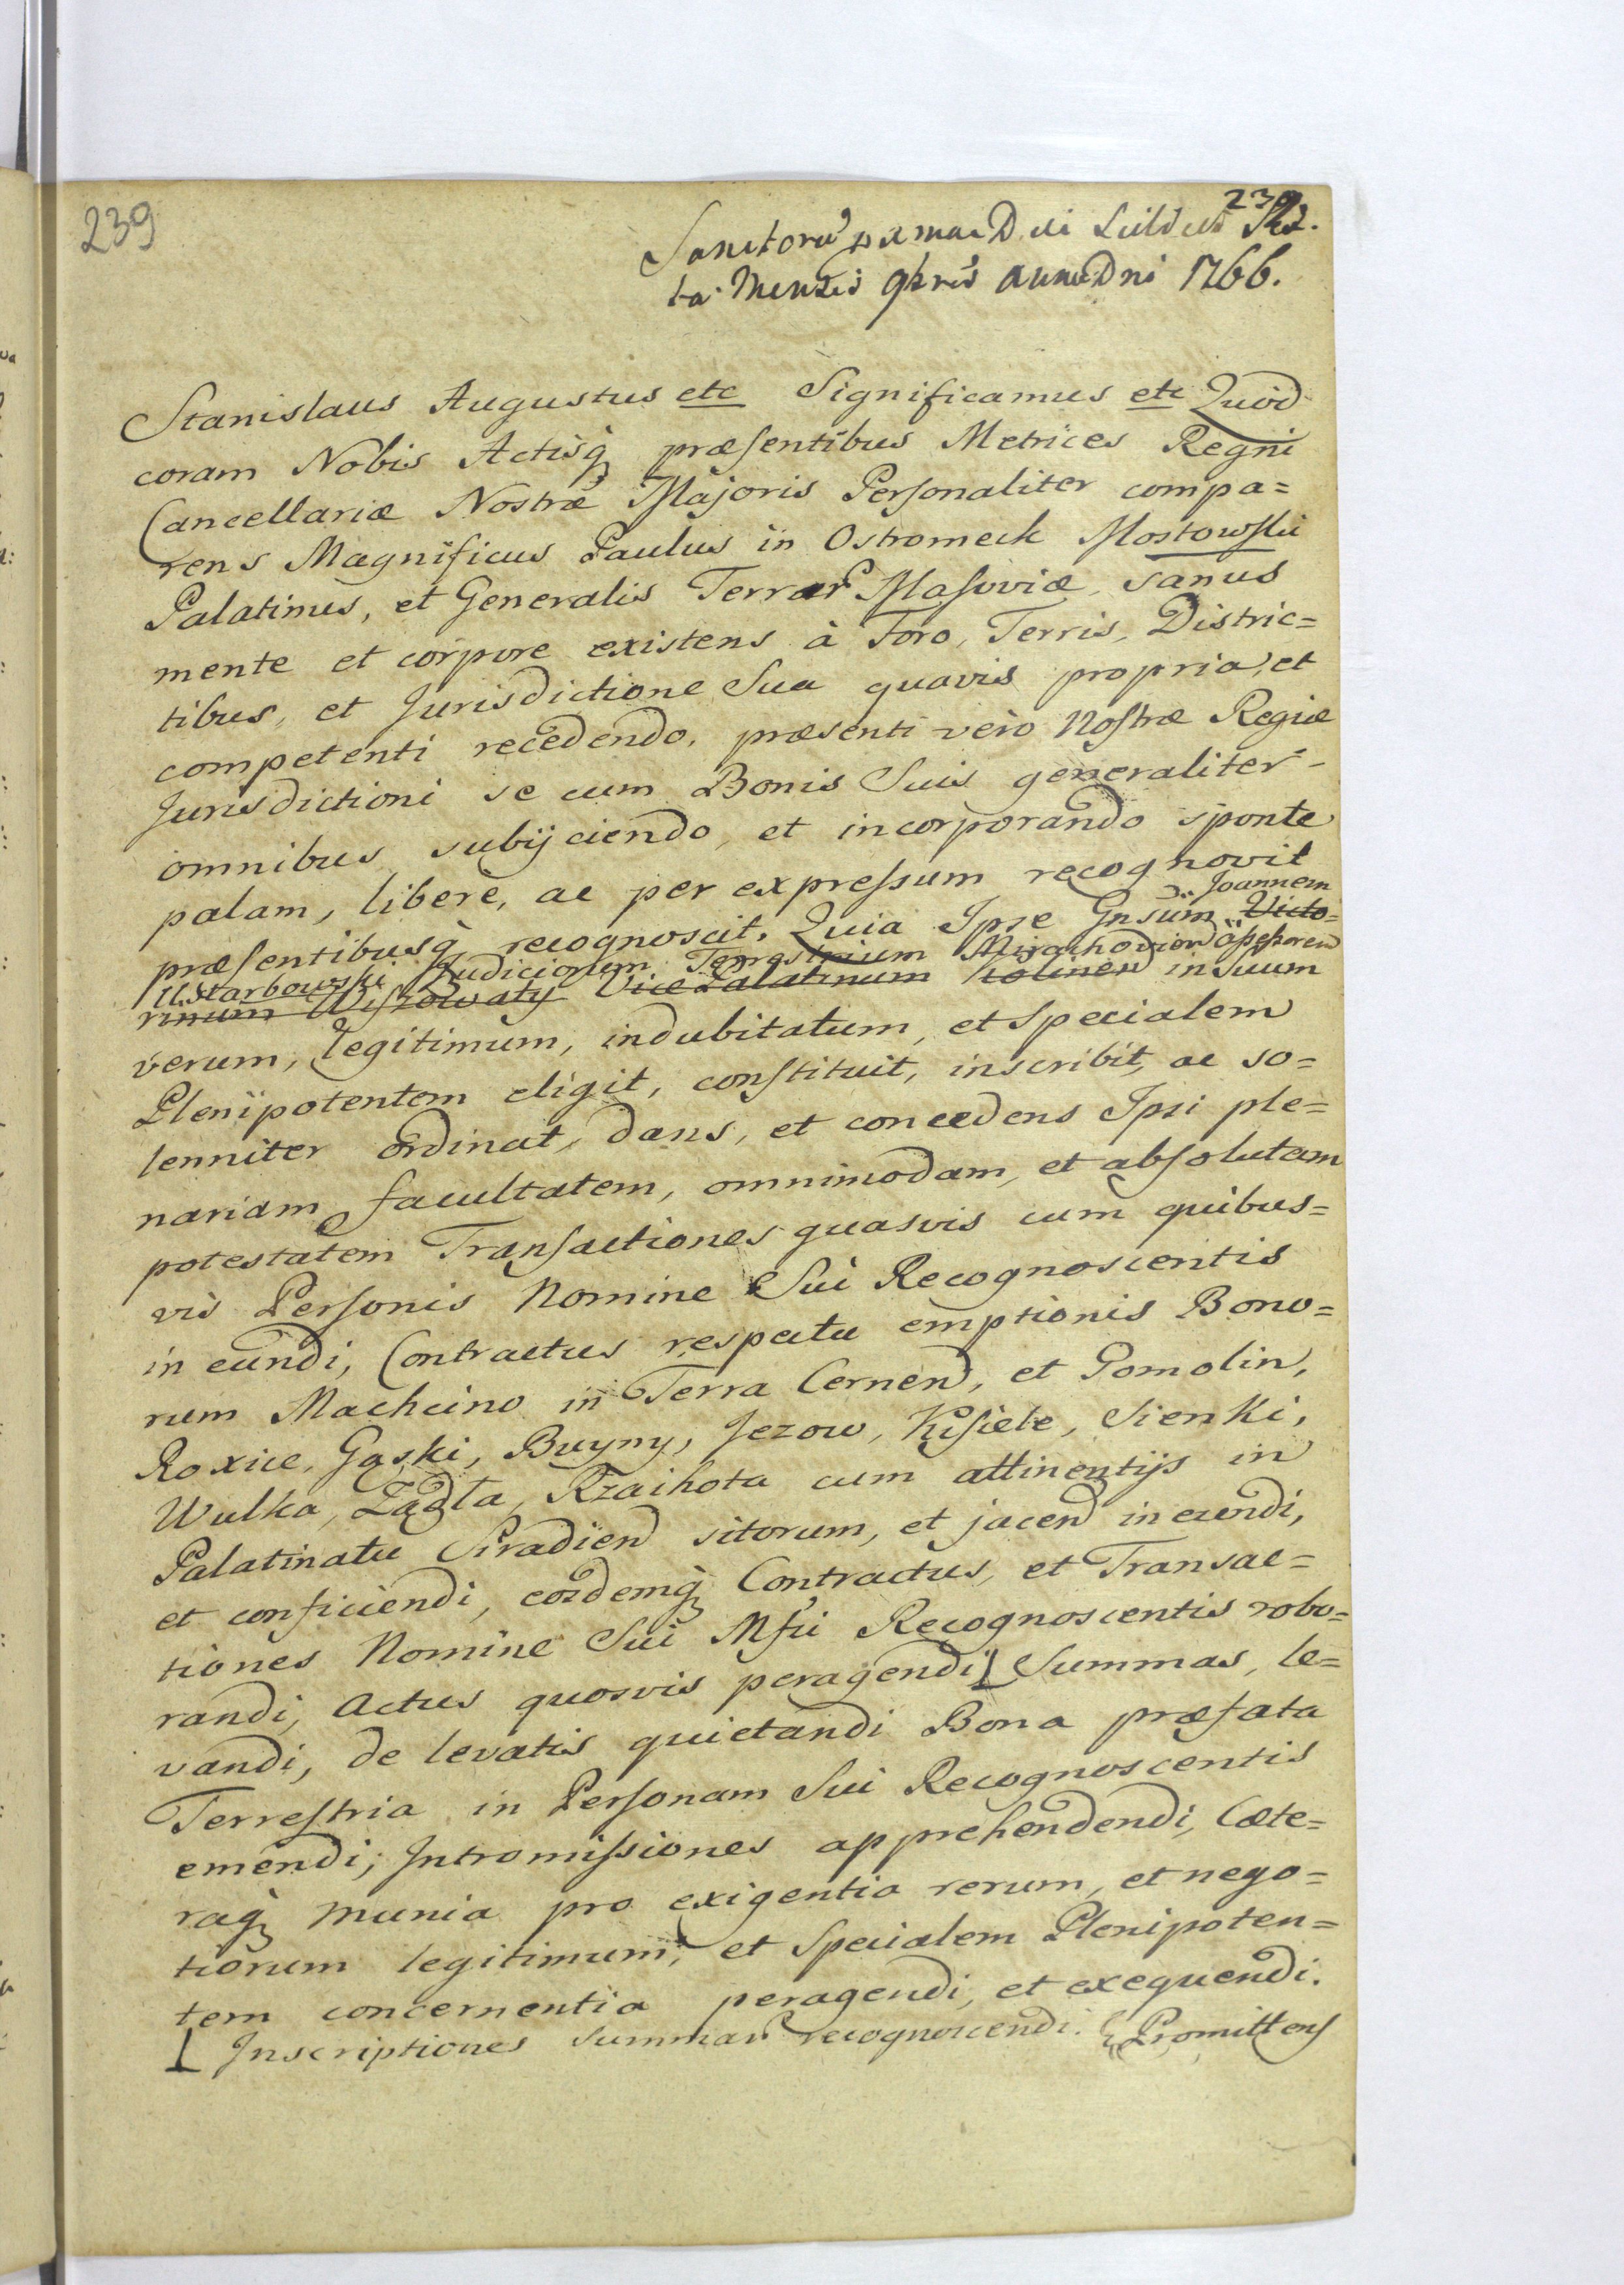 239
239
Sanctorū
ta Mensis 9bris anno Dni 1766.
Stanislaus Augustus etc Significamus etc Quod
coram Nobis Actisq̀ præsentibus Metrices Regni
Cancellariæ Nostræ Majoris Personaliter compa=
rens Magnificus Paulus in Ostromeck Mostowski
Palatinus, et Generalis Terrar Masoviæ, sanus
mente et corpore existens à Foro, Terris, Distric=
tibus, et Jurisdictione Sua quavis propria, et
competenti recedendo, præsenti verò Nostræ Regiæ
Jurisdictioni se cum Bonis Suis generaliter
omnibus subijciendo, et incorporando sponte
palam, libere, ac per expressum recognovit
præsentibusq̀ recognoscit, Quia Ipse Gnsum Joannem Victo=
Ustarbowski Judiciorum Terrestrium Mirachovien assessorem
rinum Wiszowaty Vice Palatinum in Suum
verum, legitimum, indubitatum, et Specialem
Plenipotentem eligit, constituit, inscribit, ac so=
lenniter ordinat, dans, et concedens Ipsi ple=
nariam facultatem, omnimodam, et absolutam
potestatem Transactiones quasvis cum quibus=
vis Personis Nomine Sui Recognoscentis
in eundi, Contractus respectu emptionis Bono=
rum Machcino in Terra Cernen, et Pomolin,
Roxice, Gąski, Buyny, Jezow, Kisiele, Sienki,
Wulka, Ządła, Rzaihota cum attinentijs in
Palatinatu Siradien sitorum, et jacen ineundi,
et conficiendi, eosdemq̀ Contractus, et Transac=
tiones Nomine Sui Mfci Recognoscentis robo=
randi, Actus quosvis peragendi Summas, le=
vandi, de levatis quietandi Bona præfata
Terrestria in Personam Sui Recognoscentis
emendi; Intromissiones apprehendendi, Cæte=
raq̀ munia pro exigentia rerum, et nego=
tiorum legitimum, et Specialem Plenipoten=
tem concernentia peragendi, et exequendi.
Inscriptiones Summar recognoscendi. Promittens